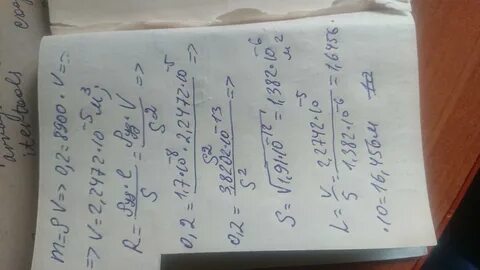 m=ρV=>0,2=8900·V=>
=>V=2,2472·10⁻⁵м³;
R=ρуд·l/S=ρуд·V/S²=>
0,2=1,7·10⁻⁸·2,2472·10⁻⁵/S²=>
0,2=3,8202·10⁻¹³/S²=>
S=√1,91·10⁻¹²=1,382·10⁻⁶м²
L=V/S=2,2742·10⁻⁵/1,382·10⁻⁶=1,6456·
·10=16,456м